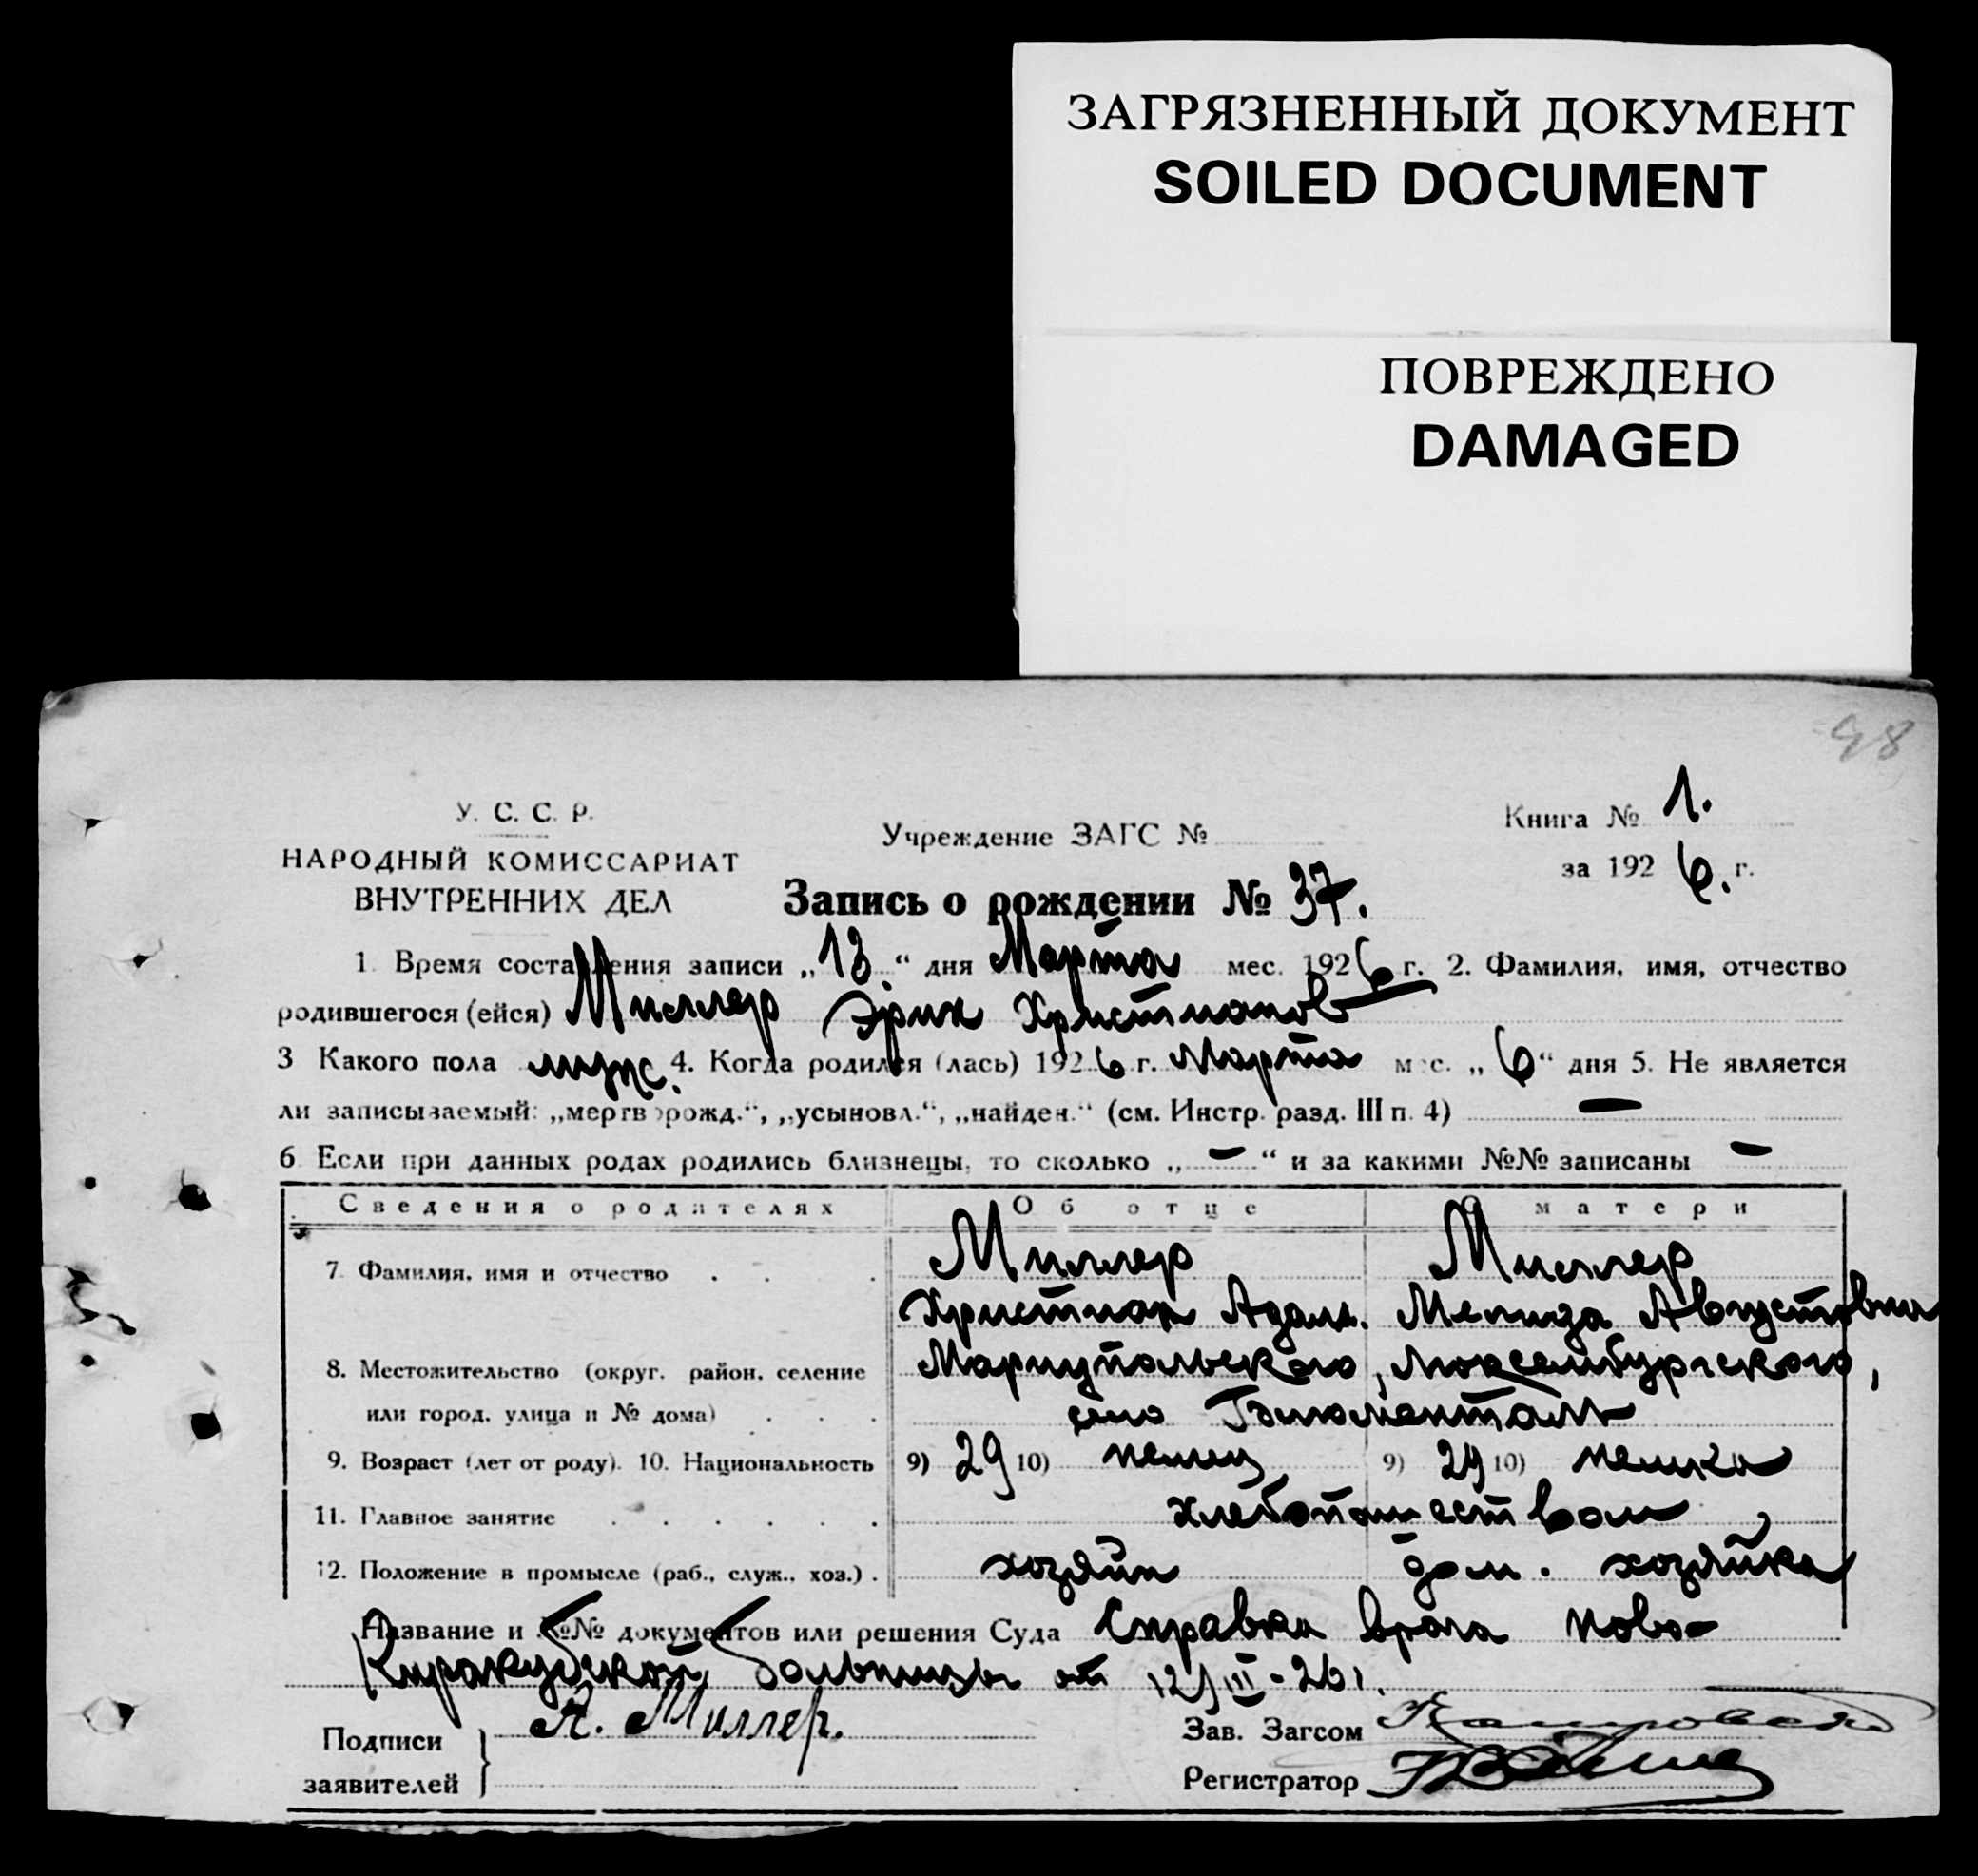 ЗАГРЯЗНЕННЫЙ ДОКУМЕНТ
SOILED DOCUMENT
ПОВРЕЖДЕНО
DAMAGED
98
У. С. С. Р.
НАРОДНЫЙ КОМИССАРИАТ
ВНУТРЕННИХ ДЕЛ
Учреждение ЗАГС №
Книга № 1.
за 1926. г.
Запись о рождении № 37.
1. Время составления записи „13.“ дня Марта мес. 1926 г. 2. Фамилия, имя, отчество
родившегося (ейся) Миллер Эрик Христианов
3 Какого пола мужс. 4. Когда родился (лась) 1926 г. Марта мес. „6“ дня 5. Не является
ли записываемый: „мертворожд.“, „усыновл.“, „найден.“ (см. Инстр. разд. III п. 4) —
6 Если при данных родах родились близнецы, то сколько „—“ и за какими №№ записаны —
Сведения о родителях Об отце О матери
7. Фамилия, имя и отчество Миллер Миллер
Христиан Адам. Августовна
8. Местожительство (округ. район. селение Мариупольского, Люксембургского,
или город, улица и № дома) село
9. Возраст (лет от роду). 10. Национальность 9) 29 10) немец 9) 24 10) немка
11. Главное занятие хлебопашеством
12. Положение в промысле (раб., служ., хоз.) хозяин дом. хозяйка
Название и №№ документов или решения Суда Справка врача Ново-
Каракубской больницы от 12/III-26г.
Подписи заявителей } А. Миллер.
Зав. Загсом
Регистратор